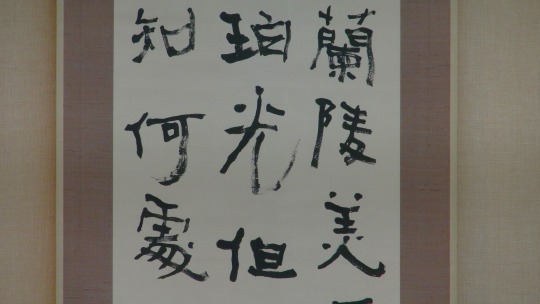 蘭陵美
珀光但
知何處